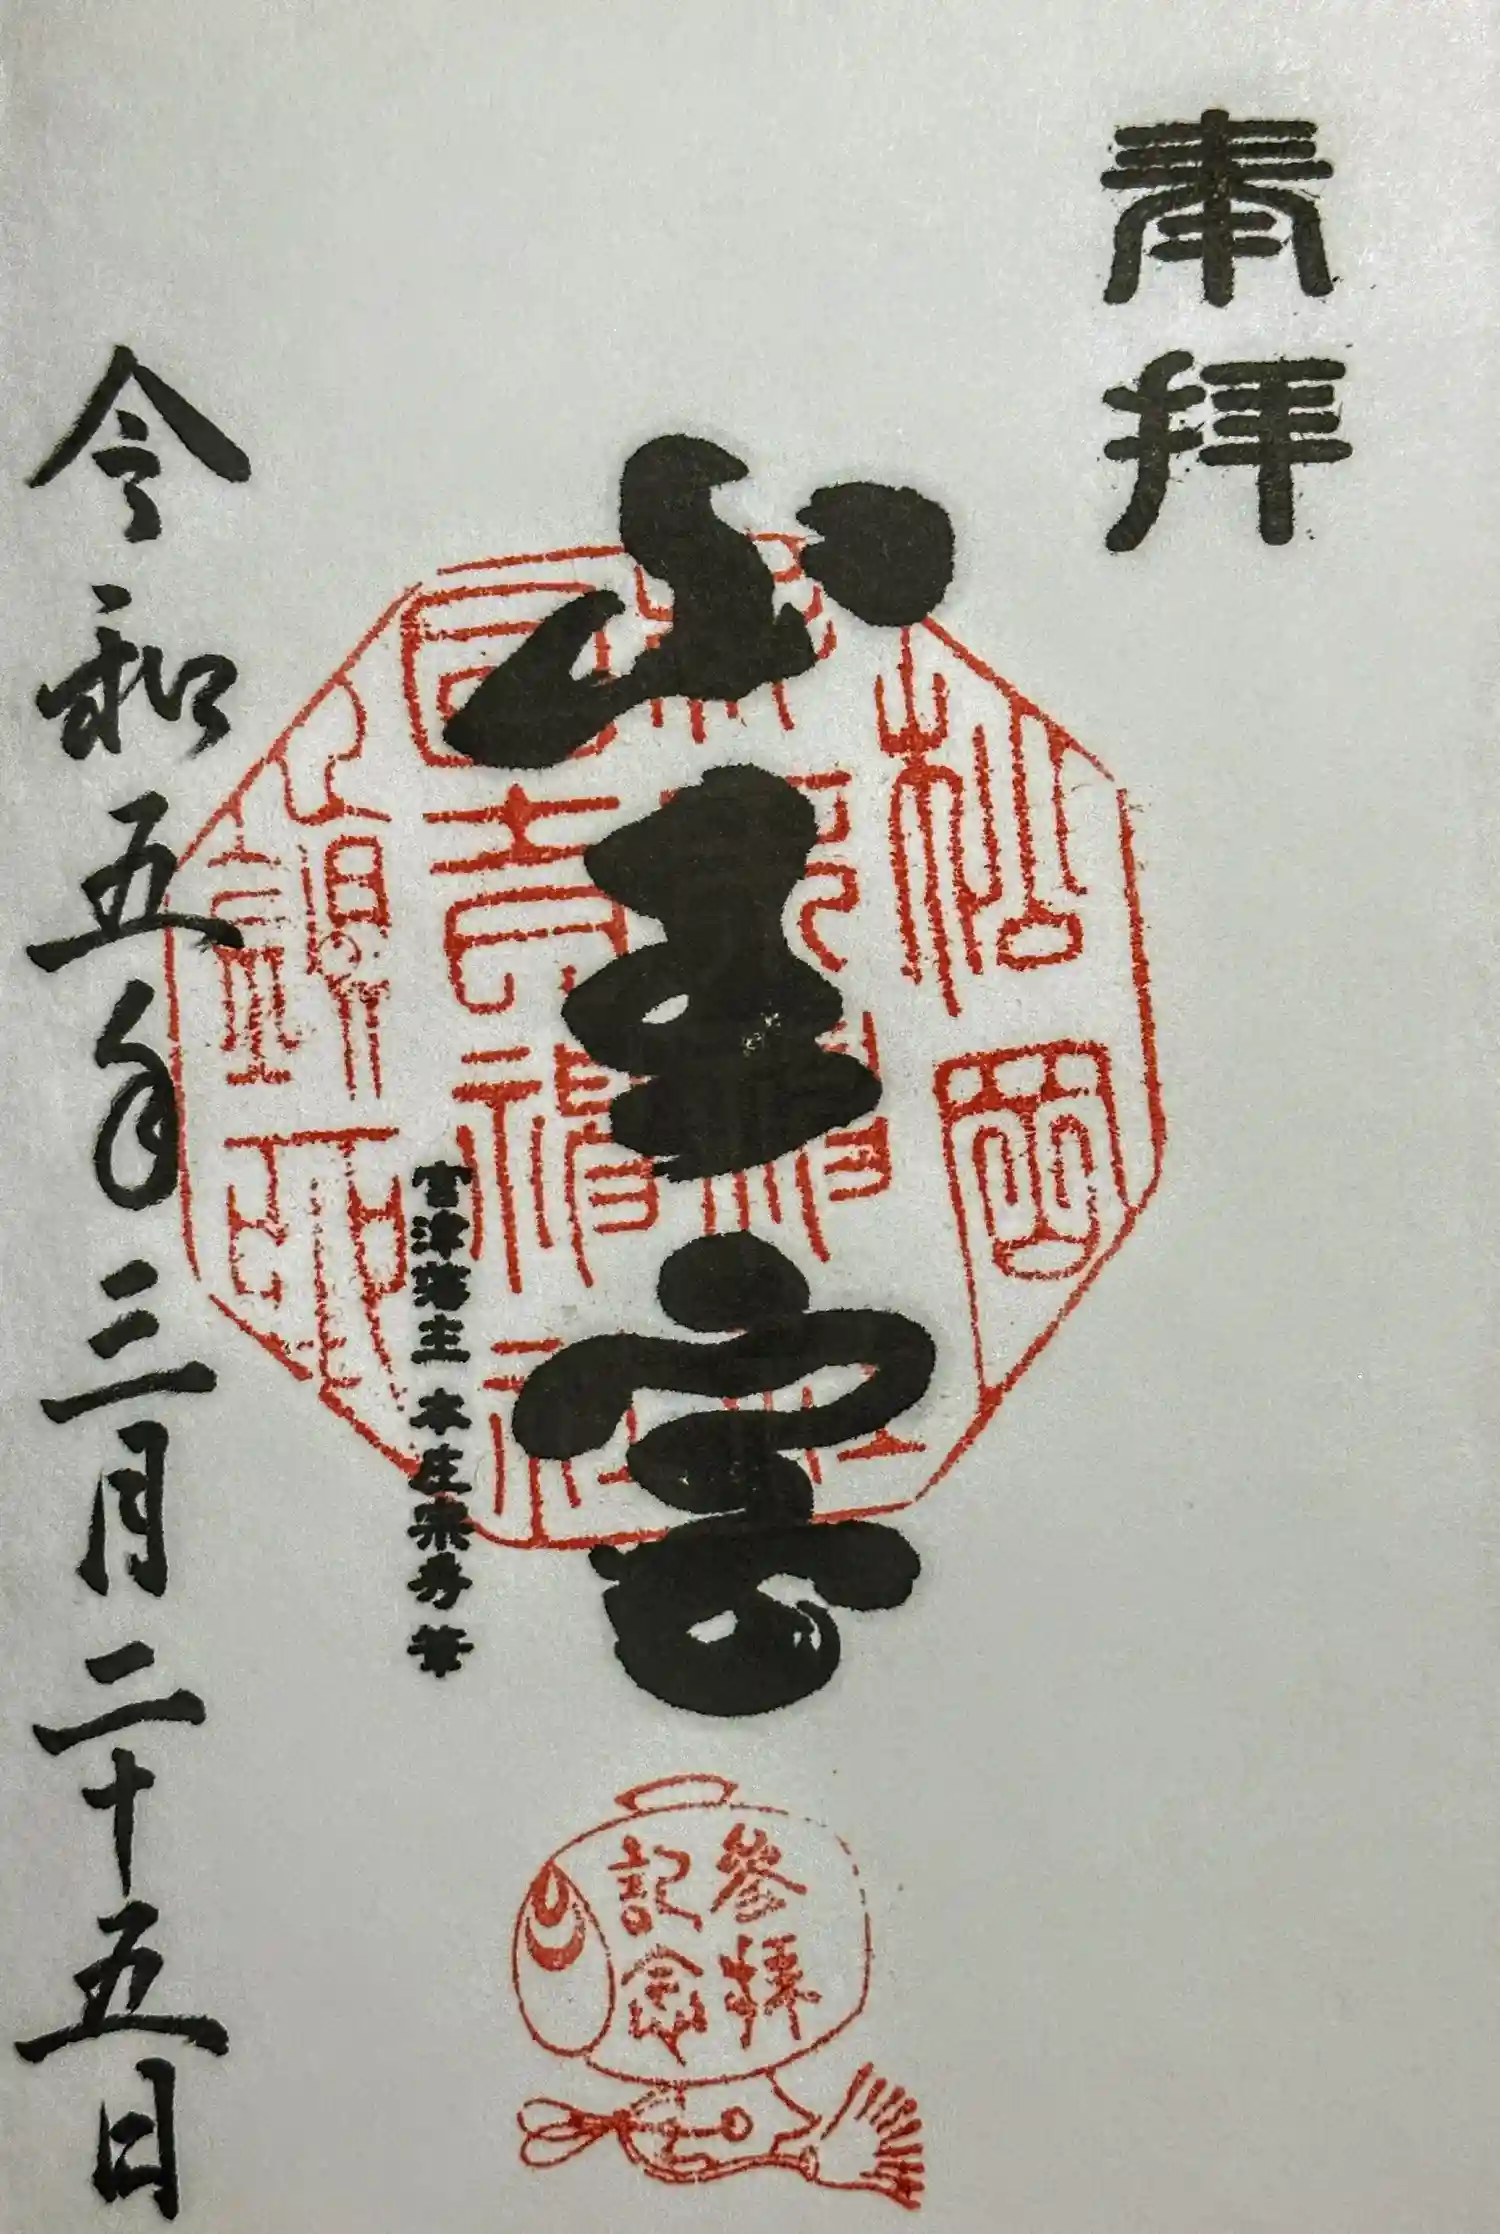 奉拝
山王宮
宮津藩主 本庄宗秀筆
令和五年三月二十五日
參拝
記念